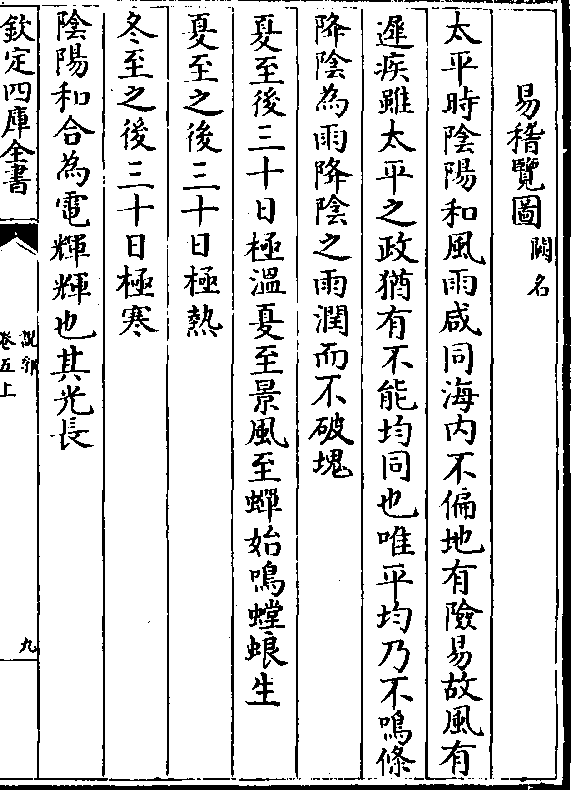 易稽覽圖闕名
太平時陰陽和風雨咸同海内不偏地有險易故風有
遲疾雖太平之政猶有不能均同也唯平均乃不鳴條
降陰為雨降陰之雨潤而不破塊
夏至後三十日極溫夏至景風至蟬始鳴螳蜋生
夏至之後三十日極熱
冬至之後三十日極寒
陰陽和合為電輝輝也其光長
欽定四庫全書
說郛
卷五上
九